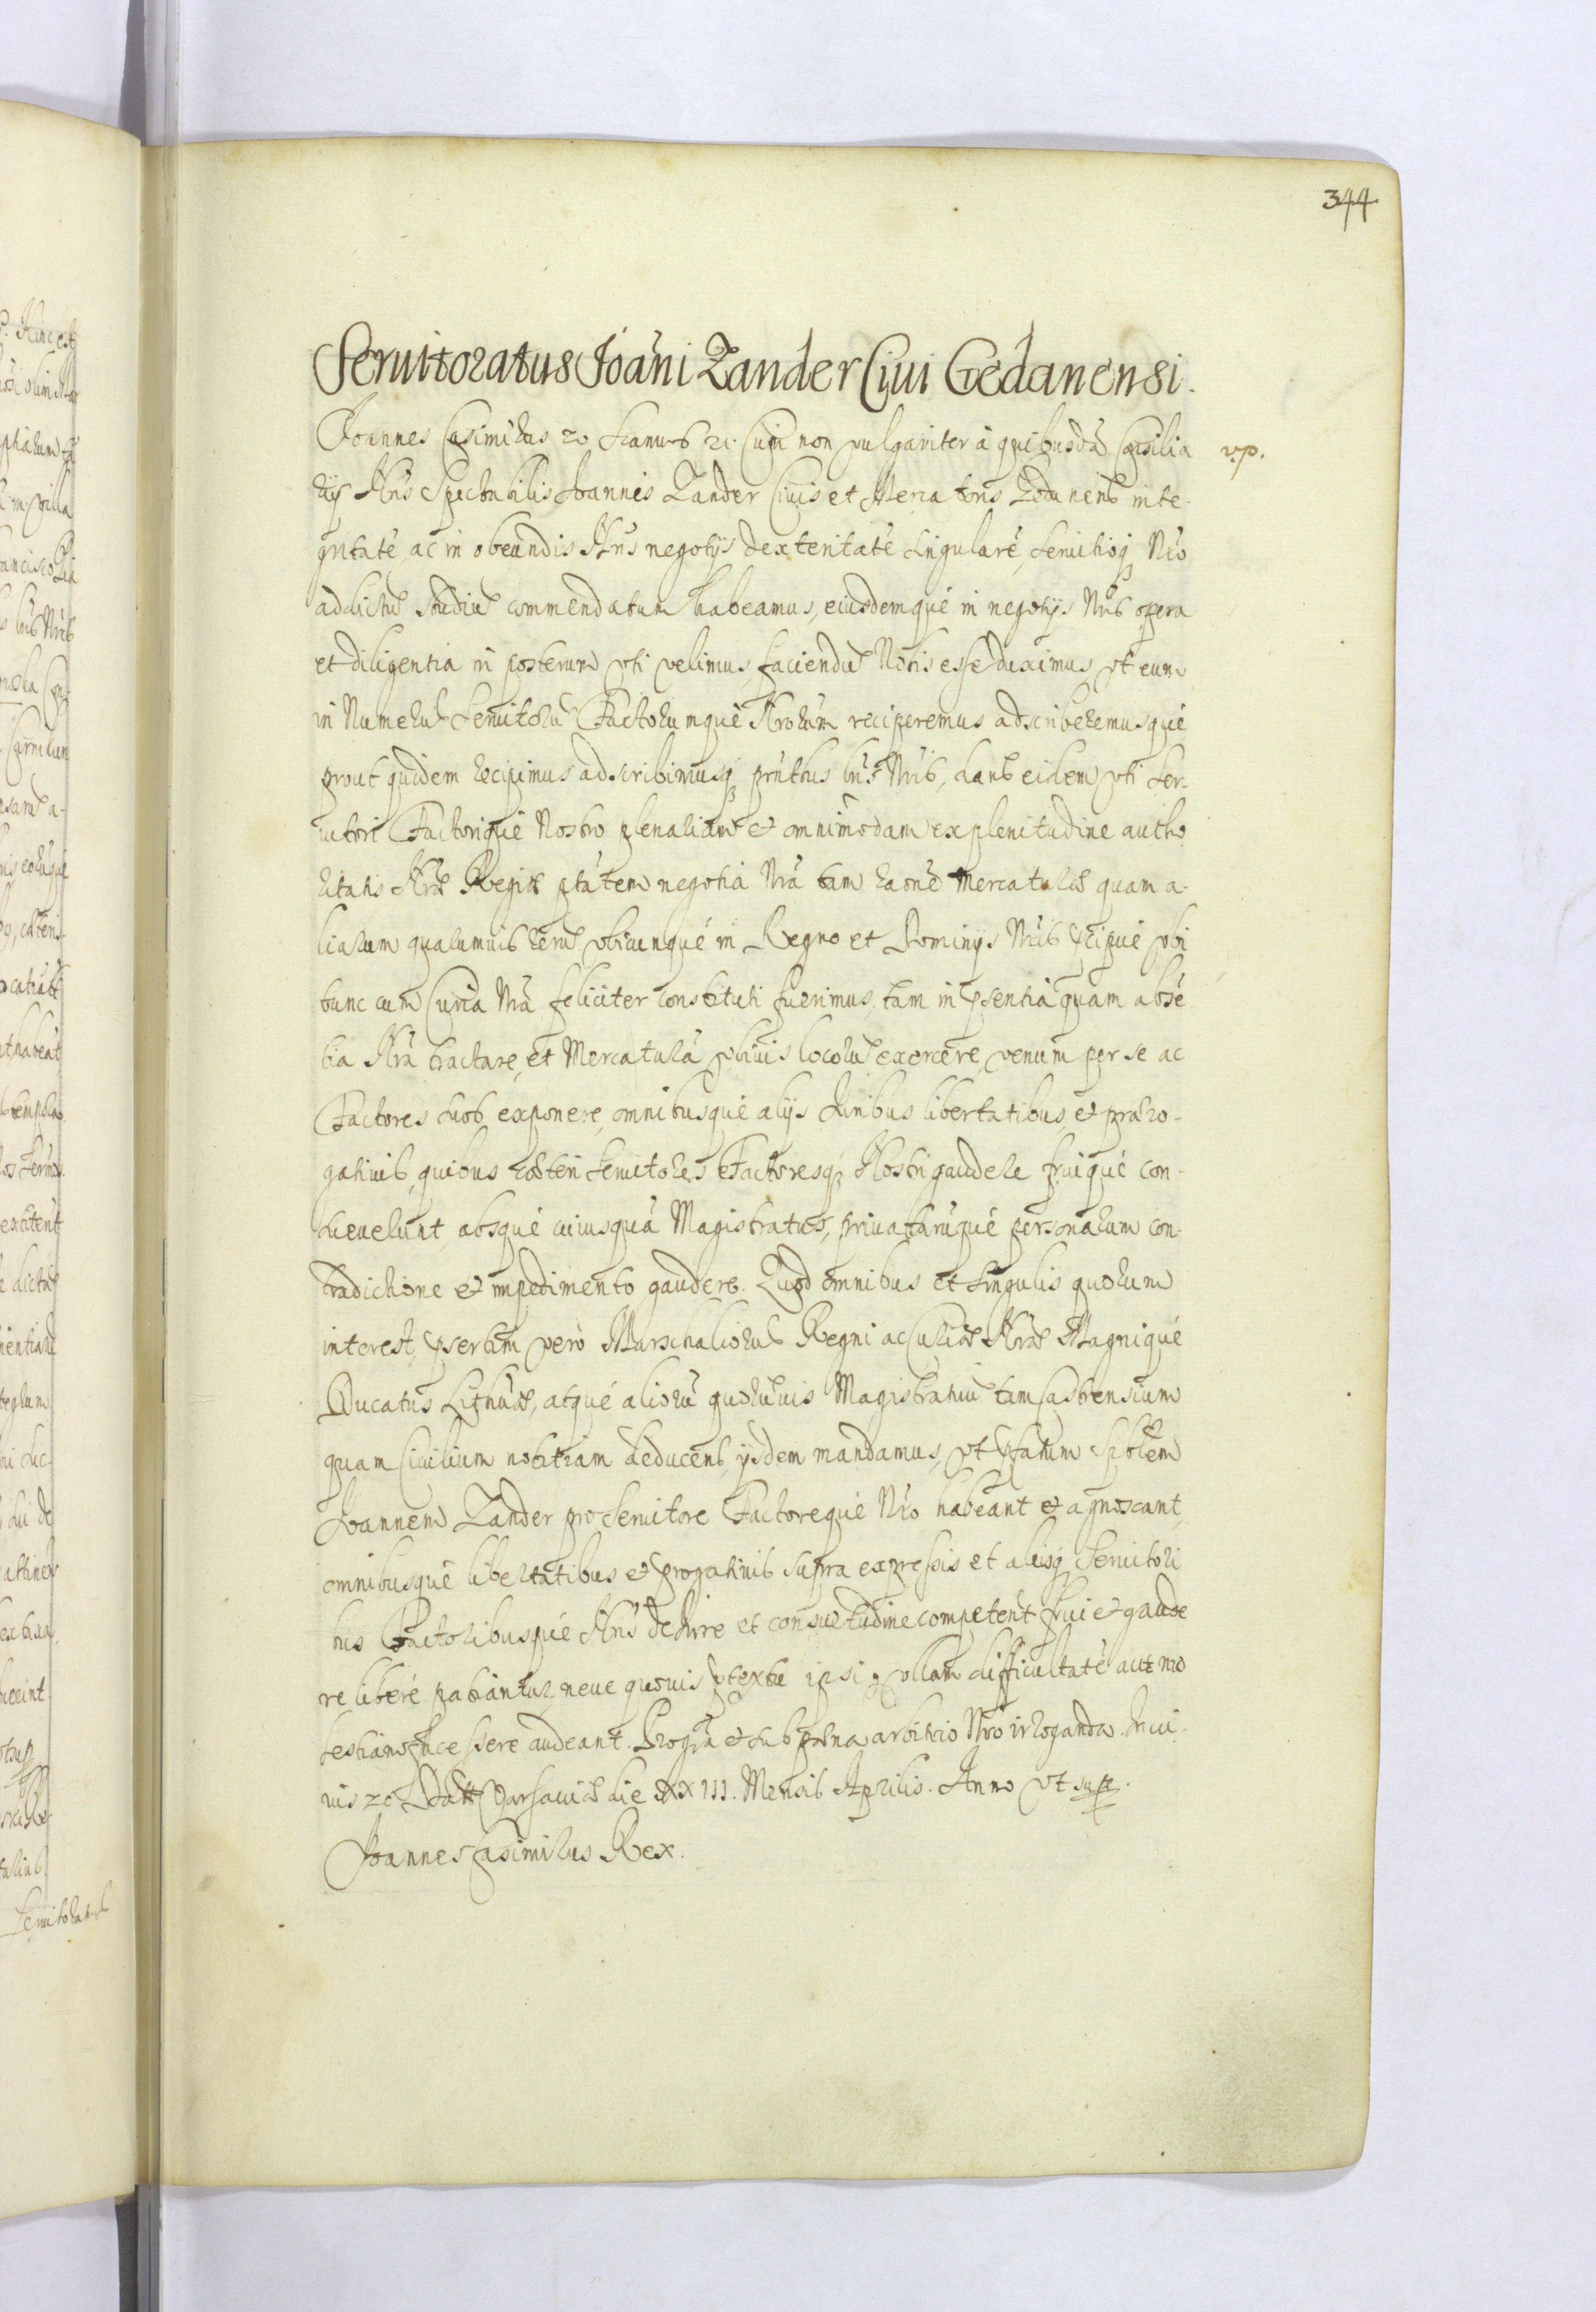 344
Seruitoratus Joãni Zander Ciui Gedanensi.
Joannes Casimirus etc. Cum non vulgariter à quibusdã Consilia v.p.
rijs Nris Spectabilis Joannis Zander Ciuis et Mercatoris Gedanens inte-
gritatẽ, ac in obeundis Nris negotijs dexteritatẽ singularẽ, seruitioq́ Nro
addictũ studiũ commendatum habeamus, eiusdemqué in negotijs Nris opera
et diligentia in posterum vti velimus, faciendũ Nobis esse duximus, vt eum
in Numerũ Seruitorũ Factorumqué Nrorum reciperemus adscriberemusqué
prout quidem recipimus adscribimusq́ pñtibus lris Nris, dants eidem vti Ser-
uitori Factoriqué Nostro plenariam et omnimodam ex plenitudine autho
ritatis Nræ Regiæ ptãtem negotia Nra tam raõne Mercaturæ quam a-
liarum quarumuis rerũ vbicunqué in Regno et Dominijs Nris pcipué vbi
tunc cum Curia Nra feliciter constituti fuerimus, tam in psentia quam absẽ
tia Nra tractare, et Mercaturã vbiuis locorũ exercere, venum per se ac
Factores suos exponere, omnibusqué alijs Juribus libertatibus et præro-
gatiuis, quibus cæteri Seruitores Factoresq́ Nostri gaudere fruiqué con-
sueuerunt, absqué cuiusquã Magistratus, priuatarũqué personarum con-
tradictione et impedimento gaudere. Quod omnibus et singulis quorum
interest, psertim verò Marschalcorũ Regni ac Curiæ Nræ Magniqué
Ducatus Lithuæ, atqué aliorũ quorũuis Magistratuũ tam Castrensium
quam Ciuilium notitiam deducens, ijsdem mandamus, vt pfatum Spblem
Joannem Zander pro Seruitore Factorequé Nro habeant et agnoscant,
omnibusqué libertatibus et prrogatiuis supra expressis et alijsq́ Seruitori
bus Factoribusqué Nris de Jure et consuetudine competent frui et gaude
re liberé patiantur, neue quouis ptextu ipsi vllam difficultatẽ aut mo
lestiam facessere audeant. Pro gra et sub pæna arbitrio Nro irroganda. In cui-
uis etc. Datt Varsauiæ die XXIII. Mensis Aprilis. Anno vt supr.
Joannes Casimirus Rex.